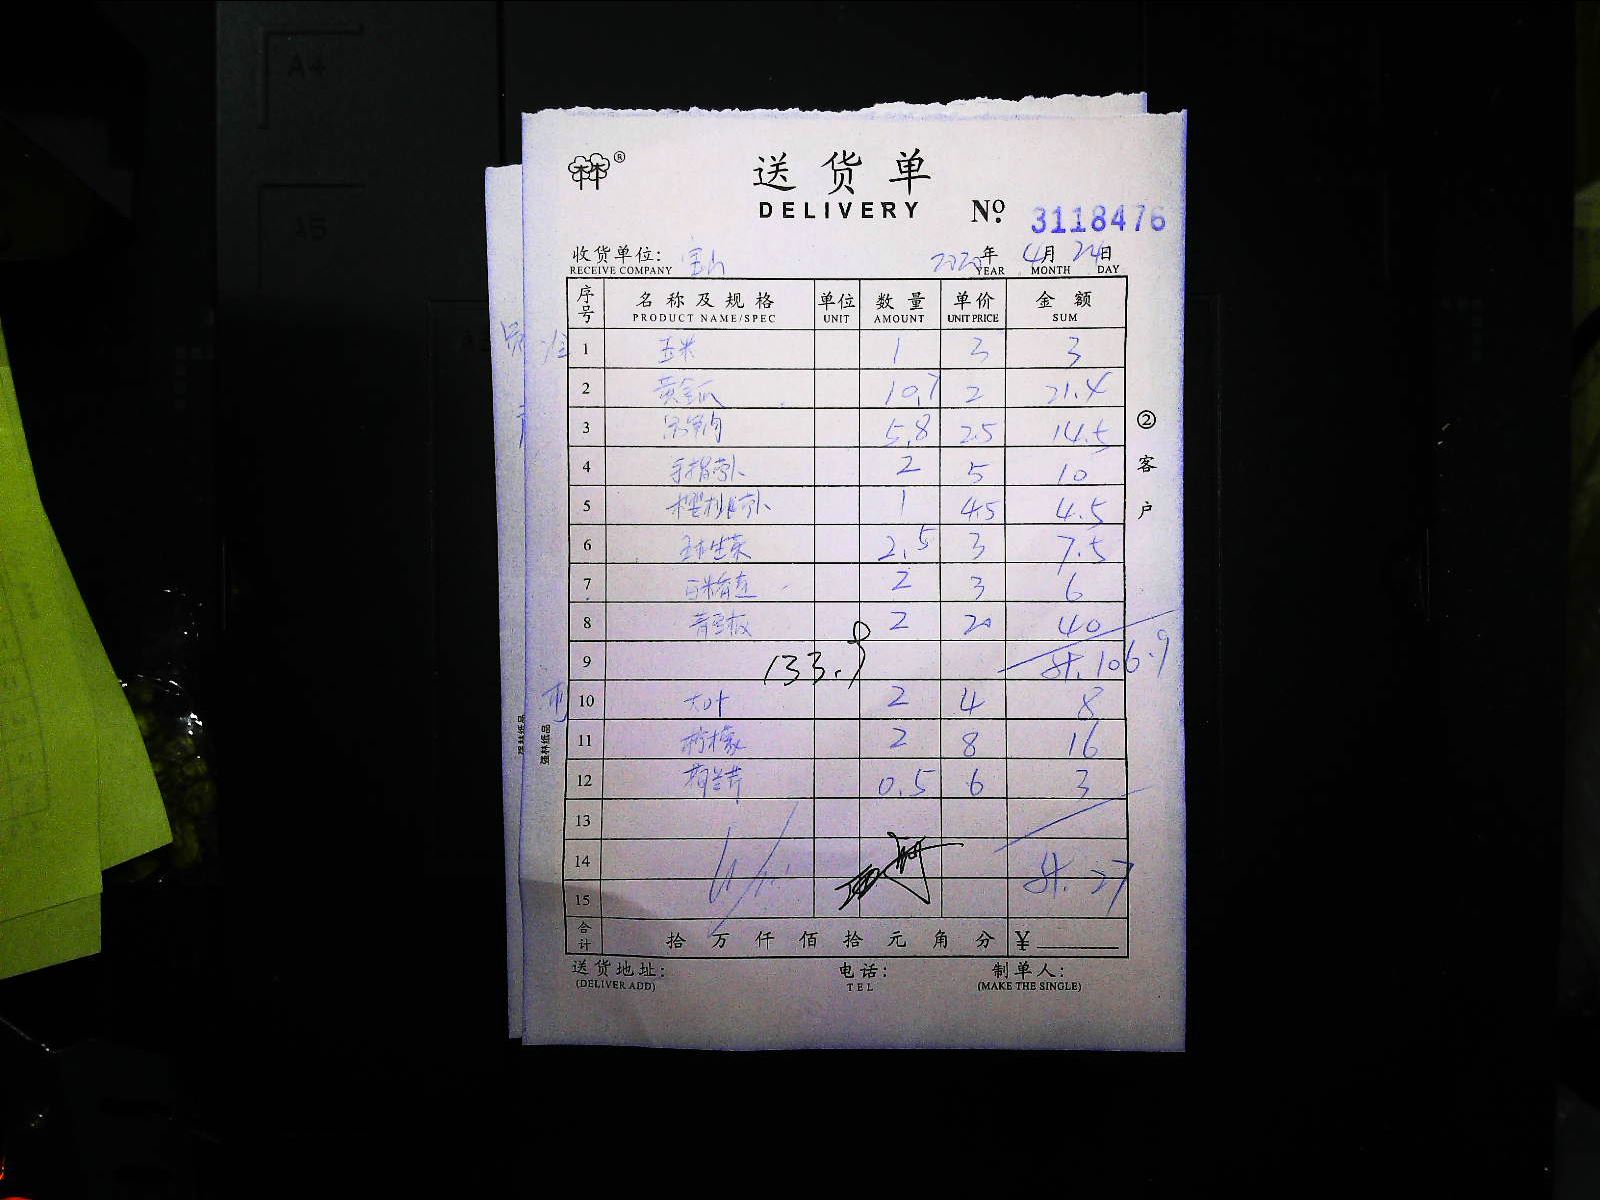 林林®
送货单
DELIVERY
№ 3118476
收货单位: 宝山
RECEIVE COMPANY
2020年 4月 24日
YEAR MONTH DAY
序号 名称及规格 单位 数量 单价 金额
PRODUCT NAME/SPEC UNIT AMOUNT UNIT PRICE SUM
1 玉米 1 3 3
2 黄金瓜 10.7 2 21.4
3 5.8 2.5 14.5
4 手指萝卜 2 5 10
5 樱桃萝卜 1 4.5 4.5
6 生菜 2.5 3 7.5
7 2 3 6
8 2 20 40
9 133.9 计.106.9
10 大叶 2 4 8
11 柠檬 2 8 16
12 荷兰芹 0.5 6 3
13
14 计.27
15
合计 拾万仟佰拾元角分 ¥
送货地址: 电话: 制单人:
(DELIVER ADD) TEL (MAKE THE SINGLE)
②客户
强林纸品
强林纸品
A4
A5